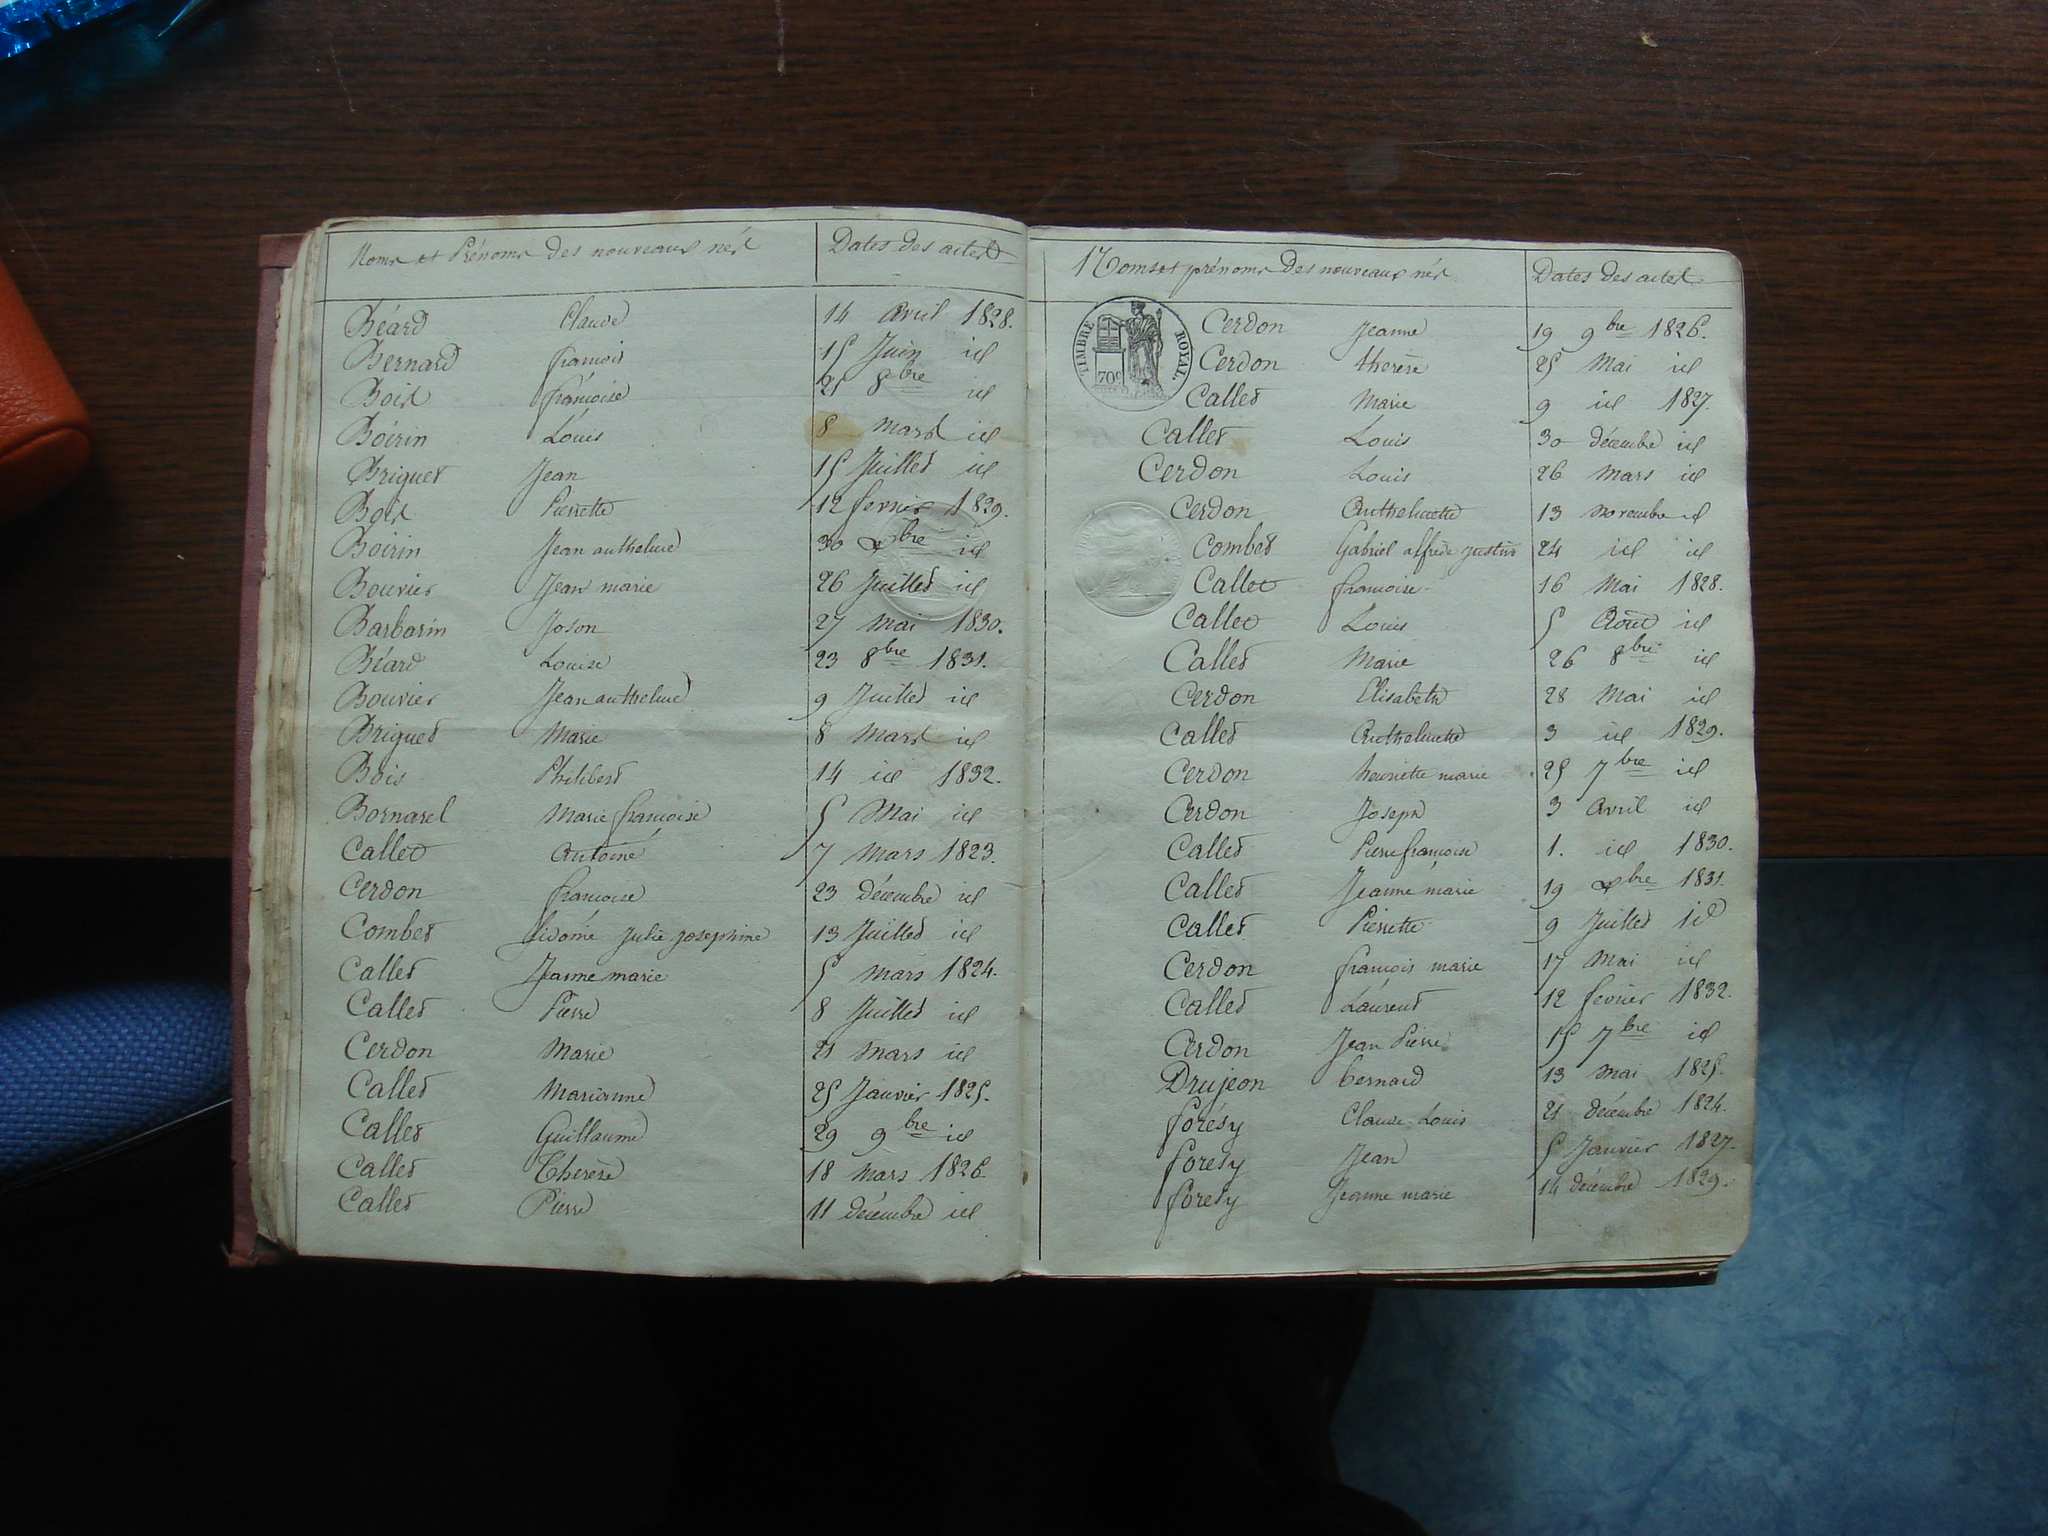 Noms et Prénoms des nouveaux nés Dates des actes
Béard Claude 14 avril 1828.
Bernard françois 15 Juin id
Bois françoise 21 8bre id
Boirin Louis 8 mars id
Briquet Jean 15 Juillet id
Bois Pierrette 12 fevrier 1829.
Boirin Jean anthelme 30 xbre id
Bouvier Jean marie 26 Juillet id
Barbarin Joson 27 mai 1830.
Béard Louise 23 8bre 1831.
Bouvier Jean anthelme 9 Juillet id
Briquet Marie 8 Mars id
Bois Philibert 14 id 1832.
Bornarel Marie françoise 5 Mai id
Callet antoine 7 mars 1823.
Cerdon françoise 23 décembre id
Combet Julie Josephine 13 Juillet id
Callet Jeanne marie 5 mars 1824.
Callet Pierre 8 Juillet id
Cerdon Marie 21 mars id
Callet Marianne 25 Janvier 1825.
Callet Guillaume 29 9bre id
Callet Therese 18 mars 1826
Callet Pierre 11 décembre id
Noms et prénoms des nouveaux nés Dates des actes
TIMBRE ROYAL.
70c
Cerdon Jeanne 19 9bre 1826.
Cerdon therèse 25 Mai id
Callet Marie 9 id 1827.
Callet Louis 30 décembre id
Cerdon Louis 26 mars id
Cerdon Anthelmette 13 novembre id
Combet Gabriel alfrede Justin 24 id id
Callet françoise 16 Mai 1828.
Callet Louis 5 Aout id
Callet Marie 26 8bre id
Cerdon Elisabeth 28 Mai id
Callet Anthelmette 3 id 1829.
Cerdon henriette marie 25 7bre id
Cerdon Joseph 3 avril id
Callet Pierre françois 1. id 1830.
Callet Jeanne marie 19 xbre 1831.
Callet Pierrette 9 Juillet id
Cerdon françois marie 17 Mai id
Callet Laurent 12 fevrier 1832.
Cerdon Jean Pierre 15 7bre id
Drujeon bernard 13 mai 1825.
forésy Claude Louis 21 décembre 1824.
foresy Jean 5 Janvier 1827.
foresy Jeanne marie 14 décembre 1829.